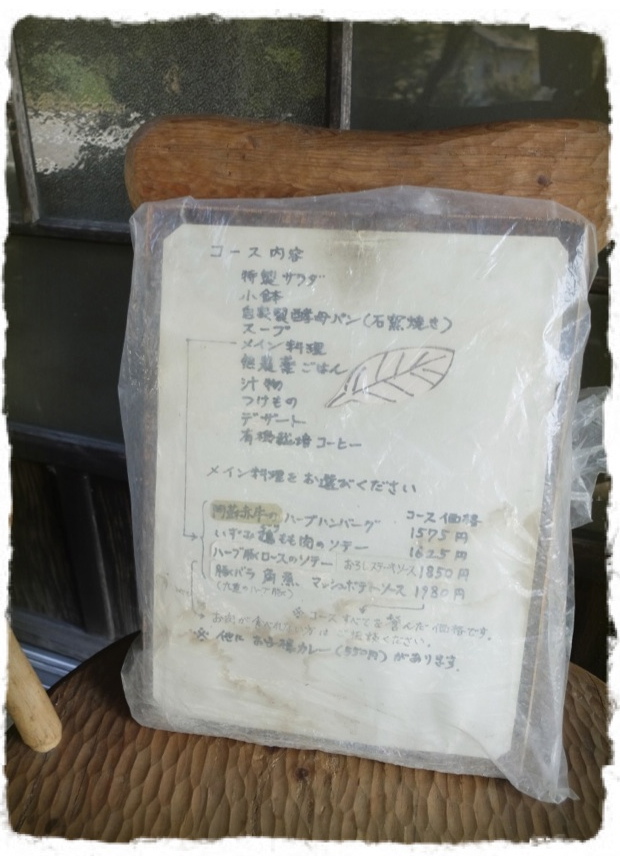 コース内容
特製サラダ
小鉢
自家製酵母パン(石窯焼き)
スープ
メイン料理
ごはん
汁物
つけもの
デザート
有機栽培コーヒー
メイン料理をお選びください
コース価格
阿蘇赤牛の ハーブハンバーグ 1575円
鶏もも肉のソテー 1625円
ハーブ豚ロースのソテー おろしステーキソース 1850円
豚バラ 角煮 マッシュポテトソース 1980円
※コースすべてを含んだ価格です。
お肉が食べれない方はご相談ください。
※他に お子様カレー(550円)があります。